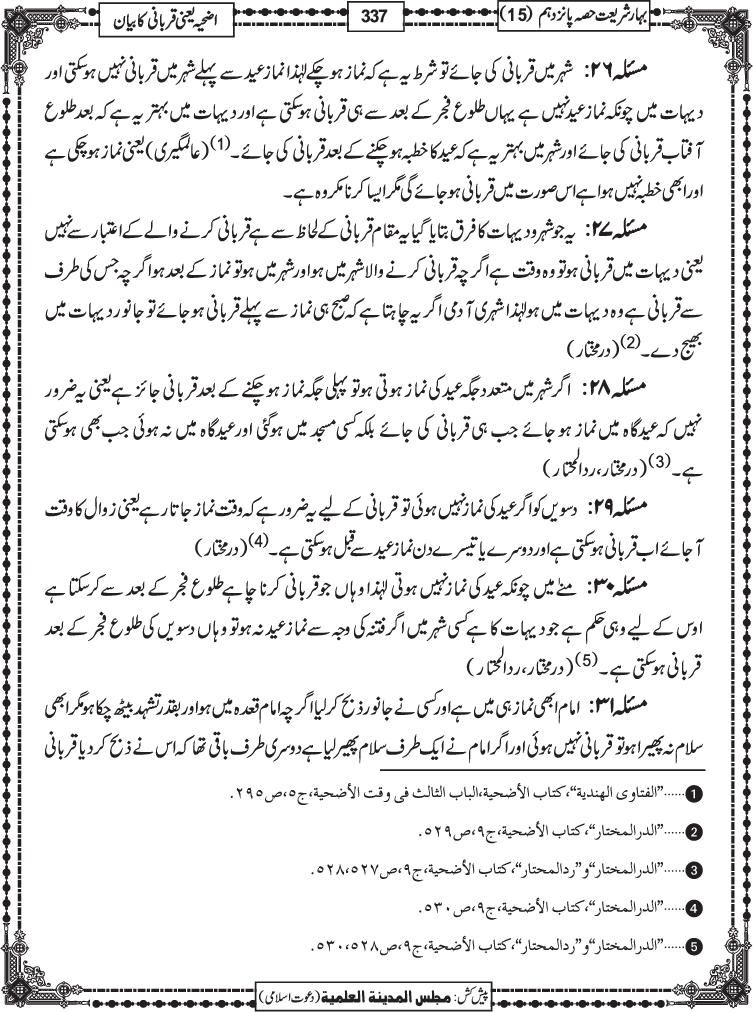 بہارِ شریعت حصہ پانزدہم (15)
337
اضحیہ یعنی قربانی کا بیان
مسئلہ ۲۶: شہر میں قربانی کی جائے تو شرط یہ ہے کہ نماز ہو چکے لہٰذا نماز عید سے پہلے شہر میں قربانی نہیں ہو سکتی اور
دیہات میں چونکہ نماز عید نہیں ہے یہاں طلوع فجر کے بعد سے ہی قربانی ہو سکتی ہے اور دیہات میں بہتر یہ ہے کہ بعد طلوع
آفتاب قربانی کی جائے اور شہر میں بہتر یہ ہے کہ عید کا خطبہ ہو چکنے کے بعد قربانی کی جائے۔(1) (عالمگیری) یعنی نماز ہو چکی ہے
اور ابھی خطبہ نہیں ہوا ہے اس صورت میں قربانی ہو جائے گی مگر ایسا کرنا مکروہ ہے۔
مسئلہ ۲۷: یہ جو شہر و دیہات کا فرق بتایا گیا یہ مقام قربانی کے لحاظ سے ہے قربانی کرنے والے کے اعتبار سے نہیں
یعنی دیہات میں قربانی ہو تو وہ وقت ہے اگرچہ قربانی کرنے والا شہر میں ہو اور شہر میں ہو تو نماز کے بعد ہو اگرچہ جس کی طرف
سے قربانی ہے وہ دیہات میں ہو لہٰذا شہری آدمی اگر یہ چاہتا ہے کہ صبح ہی نماز سے پہلے قربانی ہو جائے تو جانور دیہات میں
بھیج دے۔(2) (درمختار)
مسئلہ ۲۸: اگر شہر میں متعدد جگہ عید کی نماز ہوتی ہو تو پہلی جگہ نماز ہو چکنے کے بعد قربانی جائز ہے یعنی یہ ضرور
نہیں کہ عیدگاہ میں نماز ہو جائے جب ہی قربانی کی جائے بلکہ کسی مسجد میں ہو گئی اور عیدگاہ میں نہ ہوئی جب بھی ہو سکتی
ہے۔(3) (درمختار، ردالمحتار)
مسئلہ ۲۹: دسویں کو اگر عید کی نماز نہیں ہوئی تو قربانی کے لیے یہ ضرور ہے کہ وقت نماز جاتا رہے یعنی زوال کا وقت
آ جائے اب قربانی ہو سکتی ہے اور دوسرے یا تیسرے دن نماز عید سے قبل ہو سکتی ہے۔(4) (درمختار)
مسئلہ ۳۰: منٰے میں چونکہ عید کی نماز نہیں ہوتی لہٰذا وہاں جو قربانی کرنا چاہے طلوع فجر کے بعد سے کر سکتا ہے
اوس کے لیے وہی حکم ہے جو دیہات کا ہے کسی شہر میں اگر فتنہ کی وجہ سے نماز عید نہ ہو تو وہاں دسویں کی طلوع فجر کے بعد
قربانی ہو سکتی ہے۔(5) (درمختار، ردالمحتار)
مسئلہ ۳۱: امام ابھی نماز ہی میں ہے اور کسی نے جانور ذبح کر لیا اگرچہ امام قعدہ میں ہو اور بقدر تشہد بیٹھ چکا ہو مگر ابھی
سلام نہ پھیرا ہو تو قربانی نہیں ہوئی اور اگر امام نے ایک طرف سلام پھیر لیا ہے دوسری طرف باقی تھا کہ اس نے ذبح کر دیا قربانی
1 ......"الفتاوی الھندیة"، کتاب الأضحیة، الباب الثالث فی وقت الأضحیة، ج٥، ص٢٩٥.
2 ......"الدرالمختار"، کتاب الأضحیة، ج٩، ص٥٢٩.
3 ......"الدرالمختار" و"ردالمحتار"، کتاب الأضحیة، ج٩، ص٥٢٧، ٥٢٨.
4 ......"الدرالمختار"، کتاب الأضحیة، ج٩، ص٥٣٠.
5 ......"الدرالمختار" و"ردالمحتار"، کتاب الأضحیة، ج٩، ص٥٢٨، ٥٣٠.
پیش کش: مجلس المدینة العلمیة (دعوت اسلامی)